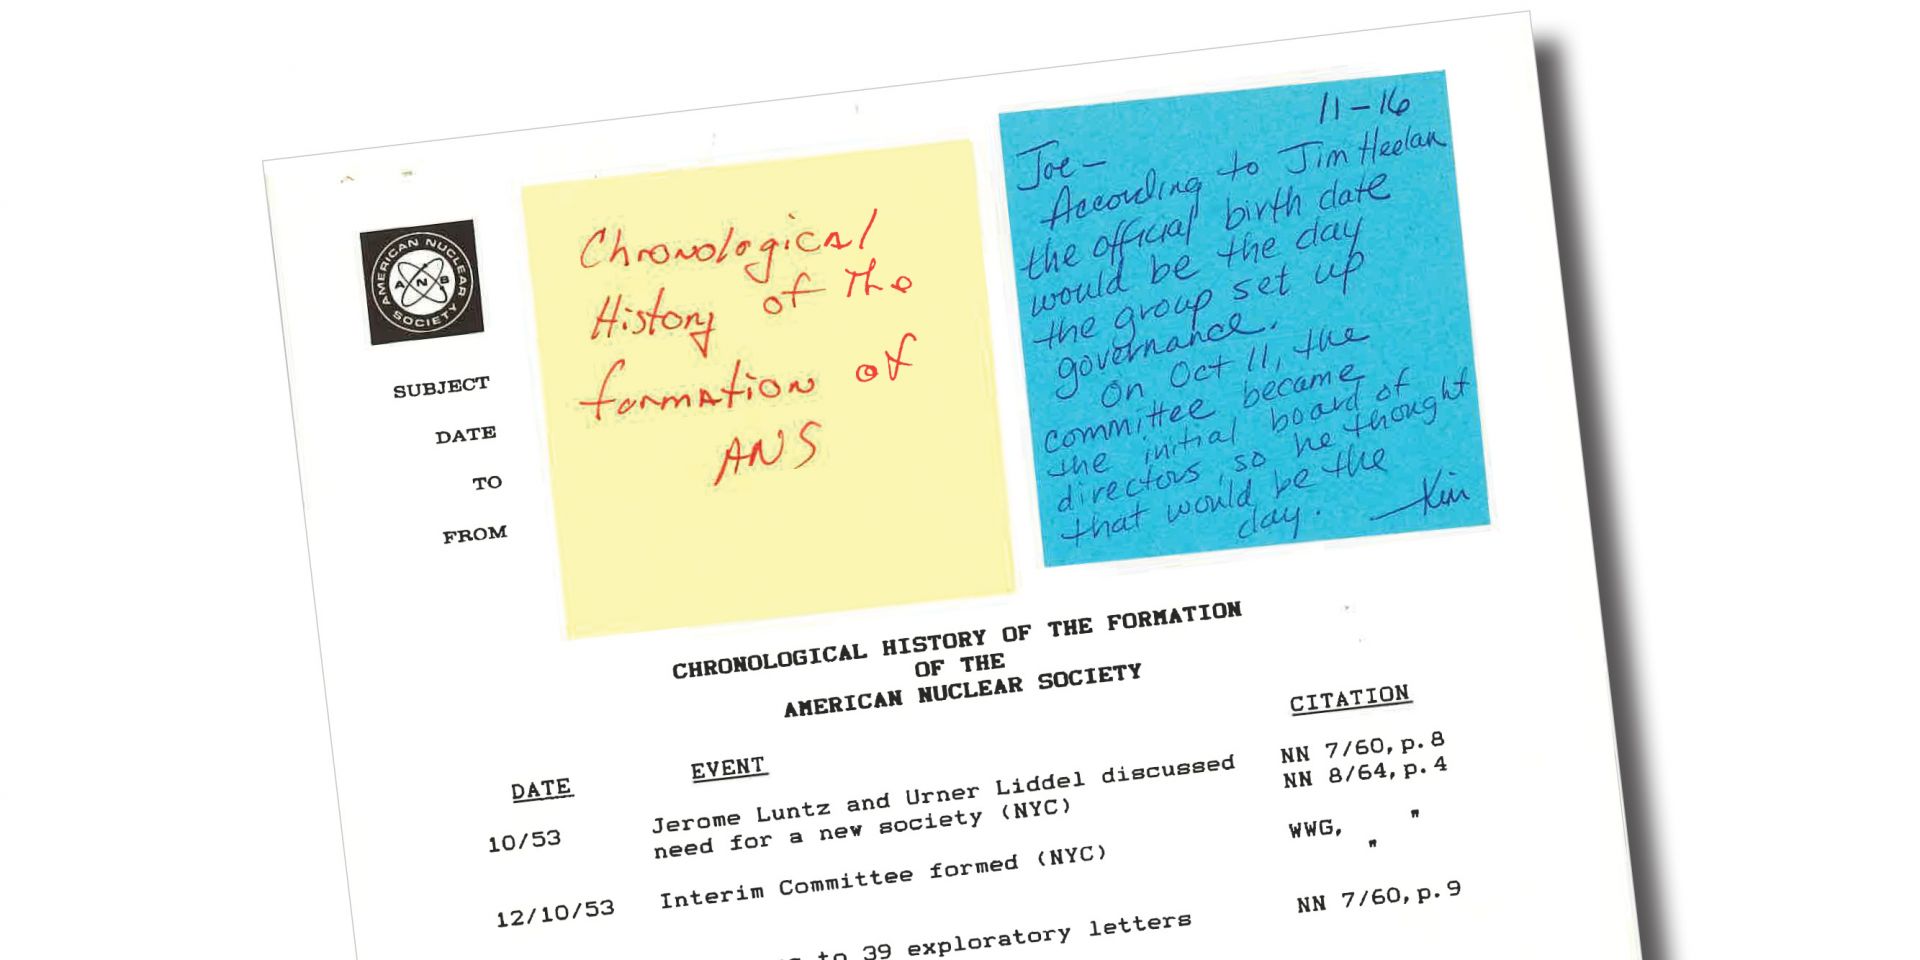 AMERICAN NUCLEAR
SOCIETY
ANS
SUBJECT
DATE
TO
FROM
Chronological
History of the
formation of
ANS
11-16
Joe-
According to Jim Heelan
the official birth date
would be the day
the group set up
governance.
On Oct 11, the
committee became
the initial board of
directors, so he thought
that would be the
day. -Kim
CHRONOLOGICAL HISTORY OF THE FORMATION
OF THE
AMERICAN NUCLEAR SOCIETY
DATE EVENT CITATION
10/53 Jerome Luntz and Urner Liddel discussed NN 7/60, p.8
need for a new society (NYC) NN 8/64, p.4
12/10/53 Interim Committee formed (NYC) WWG, "
"
to 39 exploratory letters NN 7/60, p.9